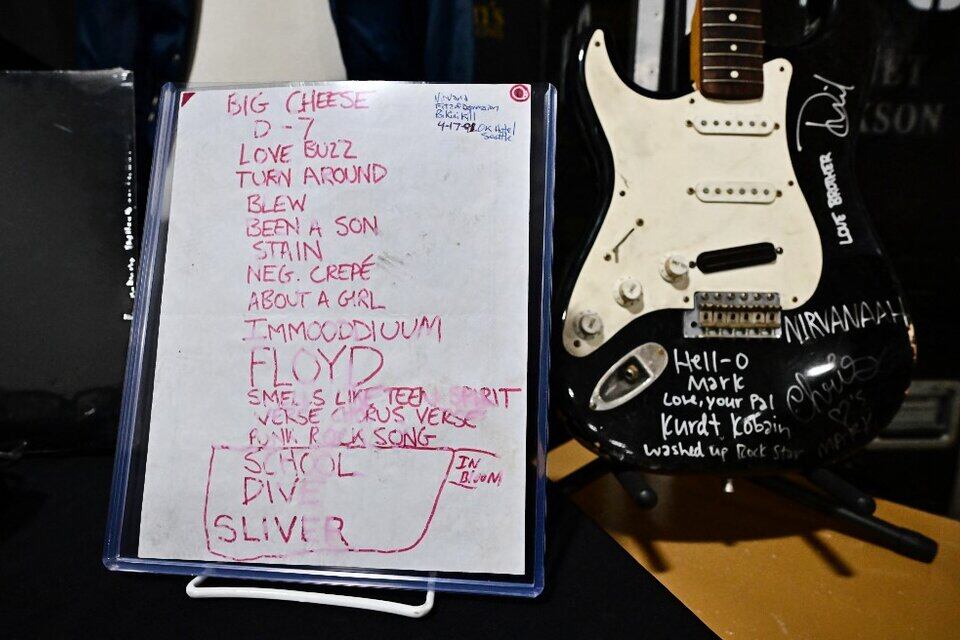 BIG CHEESE
D-7
LOVE BUZZ
TURN AROUND
BLEW
BEEN A SON
STAIN
NEG. CREPÉ
ABOUT A GIRL
IMMODDIUUM
FLOYD
SMELLS LIKE TEEN SPIRIT
VERSE CHORUS VERSE
PUNK ROCK SONG
SCHOOL
DIVE
SLIVER
IN
BLOOM
Bikini Kill
4-17-91 OK Hotel
Seattle
LOVE BROKER
NIRVANAAH
Hell-o
Mark
Love, your Pal
Kurdt Kobain
Washed up Rock Star
SON